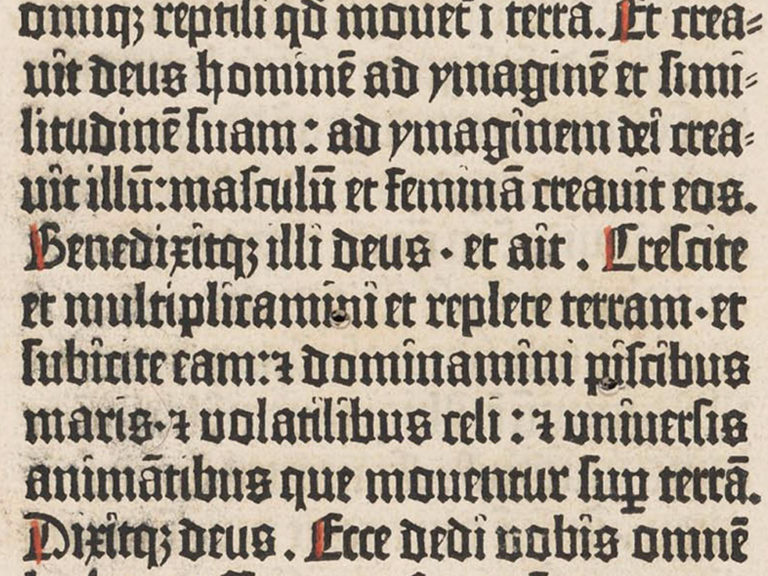 omniq; reptili qđ mouet̄ ī terra. Et crea⸗
uit deus hominē ad ymaginē et simi⸗
litudinē suam: ad ymaginem dei crea⸗
uit illū: masculū et feminā creauit eos.
Benedixitq; illi deus · et ait . Crescite
et multiplicamini et replete terram · et
subicite eam: ⁊ dominamini piscibus
maris · ⁊ volatilibus celi : ⁊ uniuersis
animātibus que mouentur suꝑ terrā.
Dixitq; deus . Ecce dedi vobis omnē